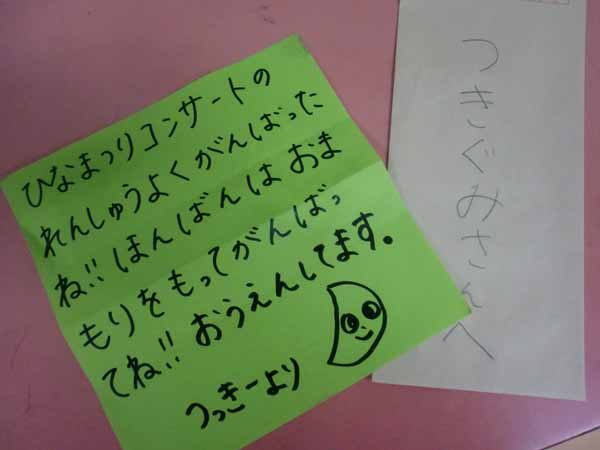 ひなまつりコンサートの
れんしゅうよくがんばった
ね!!ほんばんはおま
もりをもってがんばっ
てね!!おうえんしてます。
つっきーより
つきぐみさんへ